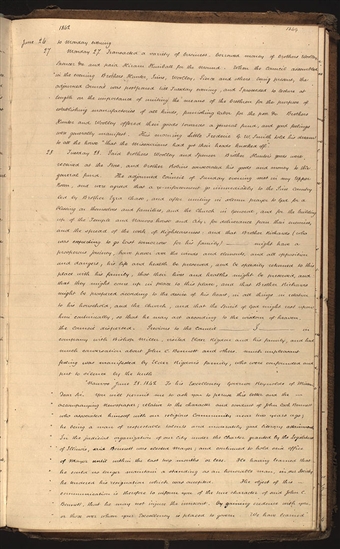 1842
1842
June 26 to Monday evening
27 Monday 27. Transacted a variety of business, borrowed money of brothers Woolley
Spencer, &c and paid Hiram Kimball for the mound. When the Council assembled
in the evening Brothers Hunter, Ivins, Woolley, Pierce and others being present, the
adjourned Council was postponed till Tuesday evening, and I proceeded to lecture at
length on the importance of uniting the means of the brethren for the purpose of
establishing manufactories of all kinds, furnishing labor for the poor &c. Brothers
Hunter and Woolley offered their goods towards a general fund, and good feelings
was generally manifest. This morning little Frederic G. W. Smith told his dream
to all the house "that the Missourians had got their heads knocked off."
28 Tuesday 28. Paid brothers Woolley and Spencer. Brother Hunters goods were
received at the store, and brother Robins consecrated his goods and money to the
general fund. The adjourned Council of Sunday evening met in my upper
Room, and were agreed that a reinforcement go immediately to the Pine Country
led by Brother Ezra Chase, and after uniting in solemn prayer to God for a
blessing on themselves and families, and the Church in general, and for the building
up of the Temple and Nauvoo House and city; for deliverance from their enemies,
and the spread of the work of Righteousness: and that Brother Richards (who
was expecting to go East tomorrow for his family) might have a
prosperous journey, have power over the winds and elements, and all opposition
and dangers, his life and health be preserved, and be speedily returned to this
place with his family, that their lives and health might be preserved, and
that they might come up in peace to this place, and that Brother Richards
might be prospered according to the desire of his heart, in all things in relation
to his household, and the Church, and that the Spirit of God might rest upon
him continually, so that he may act according to the wisdom of heaven.
the Council dispersed. Previous to the Council I in
company with Bishop Miller, visited Elder Rigdon and his family, and had
much conversation about John C. Bennett and others, much unpleasant
feeling was manifested by Elder Rigdon's family, who were confounded and
put to silence by the truth
"Nauvoo June 28. 1842. To his Excellency Governor Reynolds of Missouri
Dear Sir, You will permit me to ask you to peruse this letter and the
accompanying Newspaper, relative to the character and conduct of John Cook Bennett
who associated himself with our religious Community near two years ago;
he being a man of respectable talents and
In the judicial organization of our City under the Charter granted by the Legislature
of Illinois, said Bennett was elected Mayor, and continued to hold said office
of Mayor until within the last few months or less. He having learned that
he could no longer maintain a standing as an honorable man,
he tendered his resignation which was accepted. The object of this
communication is therefore to inform you of the true character of said John C.
Bennett, that he may not injure the innocent. By gaining credence with you
or those over whom your Excellency is placed to govern We have learned